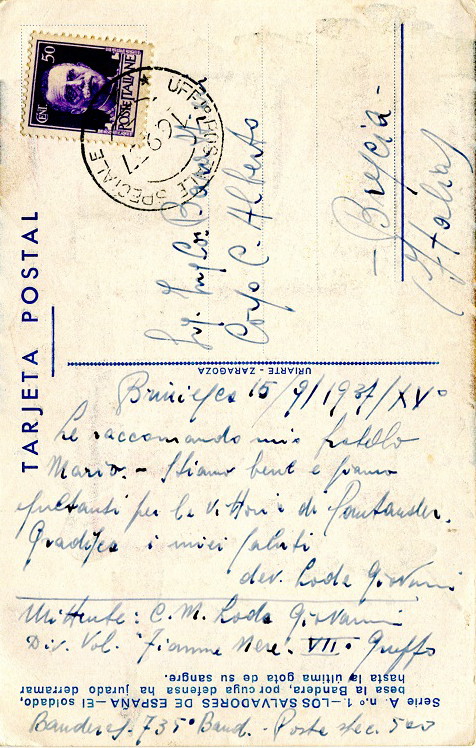 CENT. 50
POSTE ITALIANE
UFF. POSTALE SPECIALE
TARJETA POSTAL
Corso C. Alberto
- Brescia -
(Italia)
URIARTE - ZARAGOZA
15/9/1937/XV°
Le raccomando mio fratello
Mario. - Stiamo bene e siamo
esultanti per la vittoria di Santander.
Gradisca i miei saluti
dev. Loda Giovanni
Mittente: C.M. Loda Giovanni
Div. Vol. "Fiamme Nere" VII° Gruppo
Banderas - 735° Band. - Posta spec. 500
Serie A. n.° 1.-LOS SALVADORES DE ESPAÑA-El soldado,
besa la Bandera, por cuya defensa ha jurado derramar
hasta la última gota de su sangre.